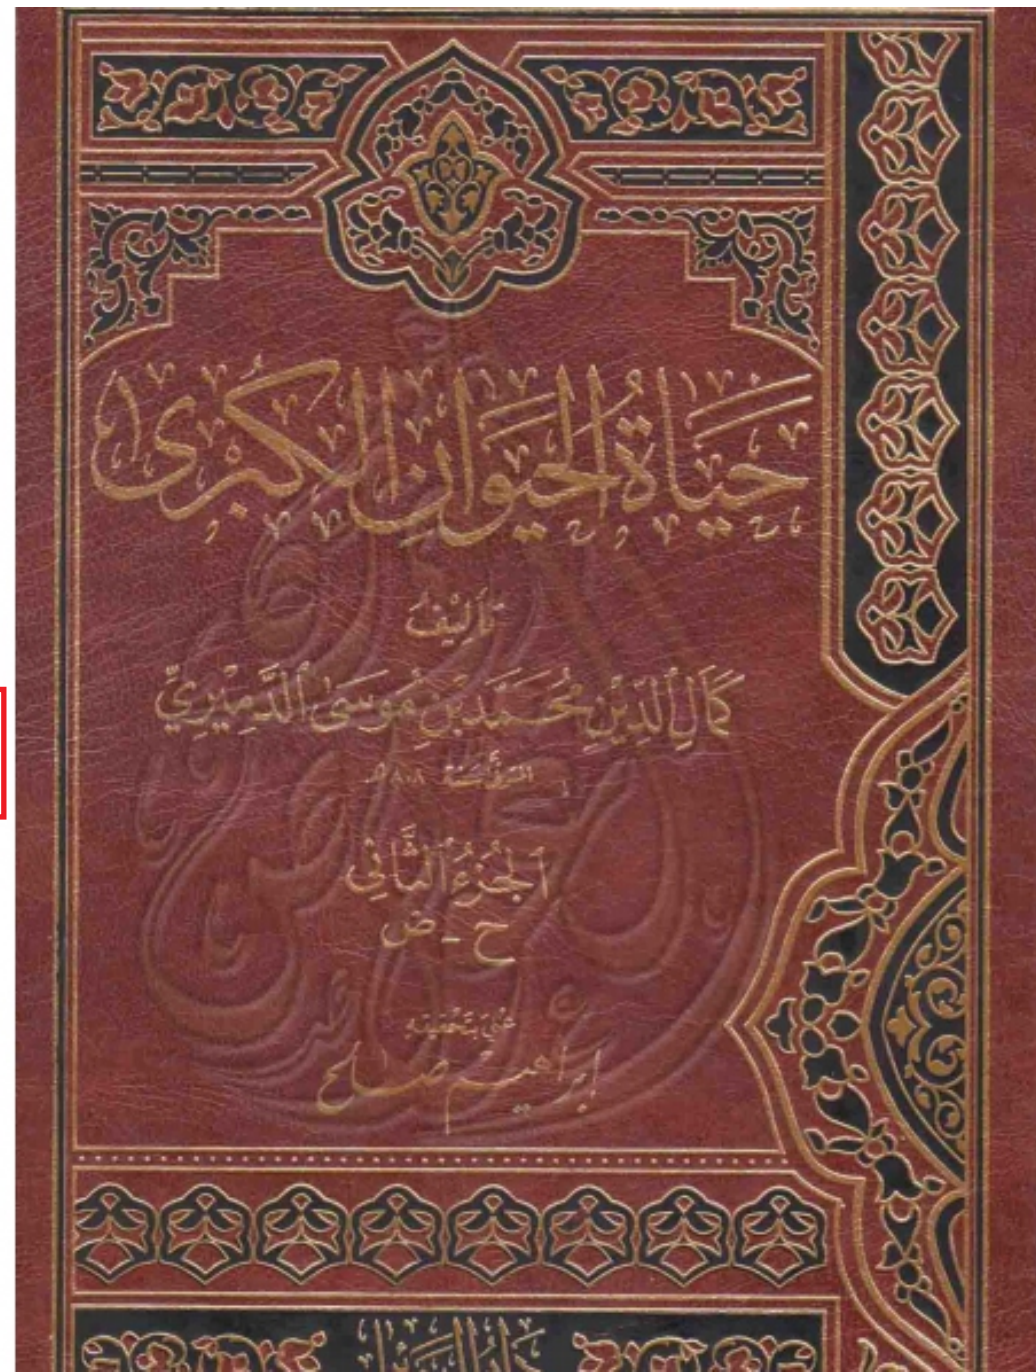 حَيَاةُ الحَيَوَانِ الكُبْرَى
تأليف
كَمَالِ الدِّينِ مُحَمَّد بْنِ مُوسَى الدَّمِيرِيِّ
المتوفى سنة ٨٠٨هـ
الجُزْءُ الثَّانِي
ح - ض
عني بتحقيقه
إبراهيم صالح